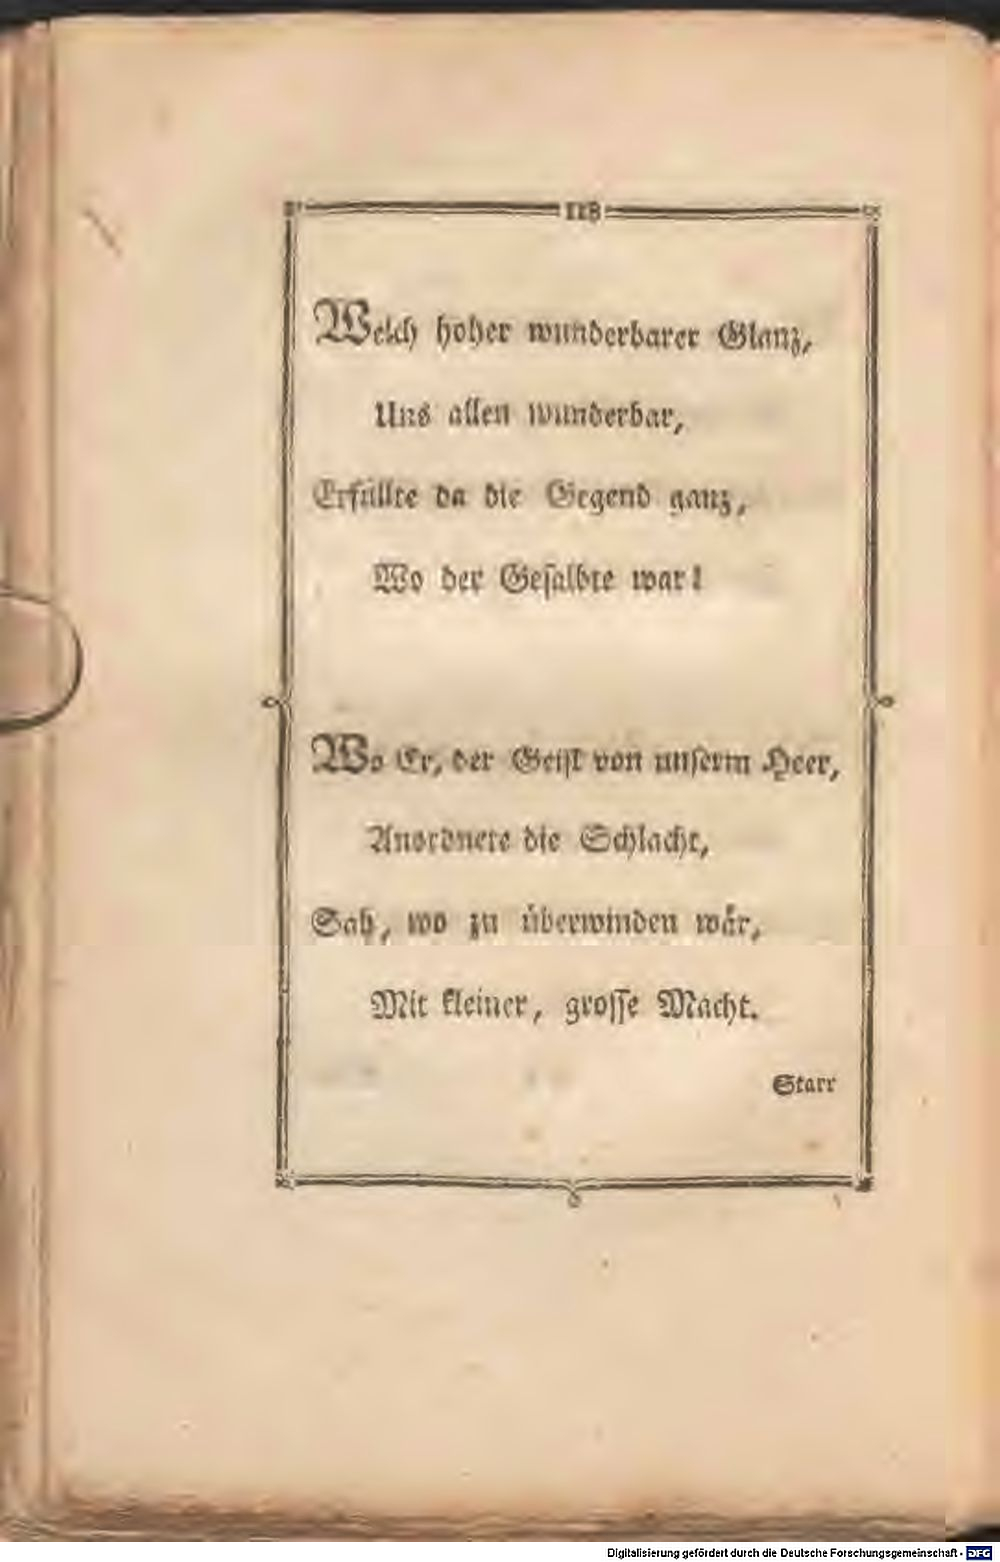 118
Welch hoher wunderbarer Glanz,
Uns allen wunderbar,
Erfüllte da die Gegend ganz,
Wo der Geſalbte war!
Wo Er, der Geiſt von unſerm Heer,
Anordnete die Schlacht,
Sah, wo zu überwinden wår,
Mit kleiner, groſſe Macht.
Starr
Digitalisierung gefördert durch die Deutsche Forschungsgemeinschaft - DFG